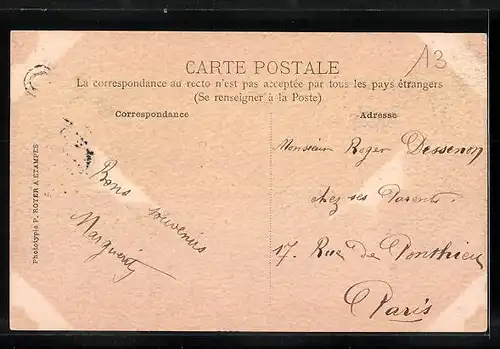 13
CARTE POSTALE
La correspondance au recto n'est pas acceptée par tous les pays étrangers
(Se renseigner à la Poste)
Correspondance
Adresse
Phototypie P. ROYER A ETAMPES
Bons
souvenirs
Marguerite
Monsieur Roger Dessenon
chez ses Parents.
17. Rue de Ponthieu
Paris